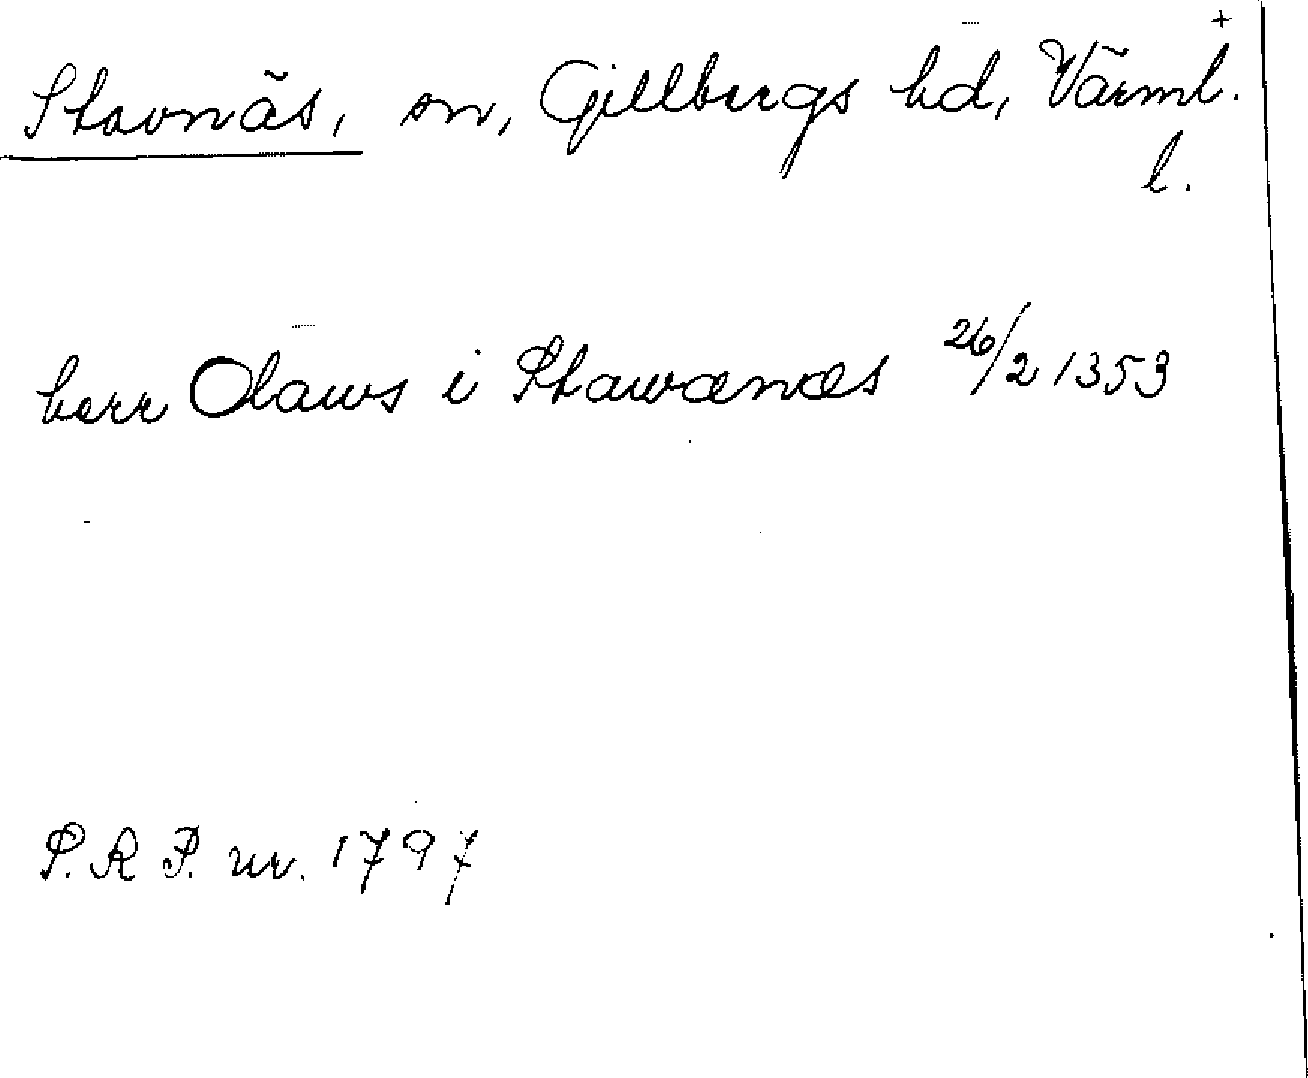 Stavnäs, sn, Gillbergs hd, Värml. +
l.
herr Olaws i Stawænæs 26/2 1353
S.R.P. nr. 1797